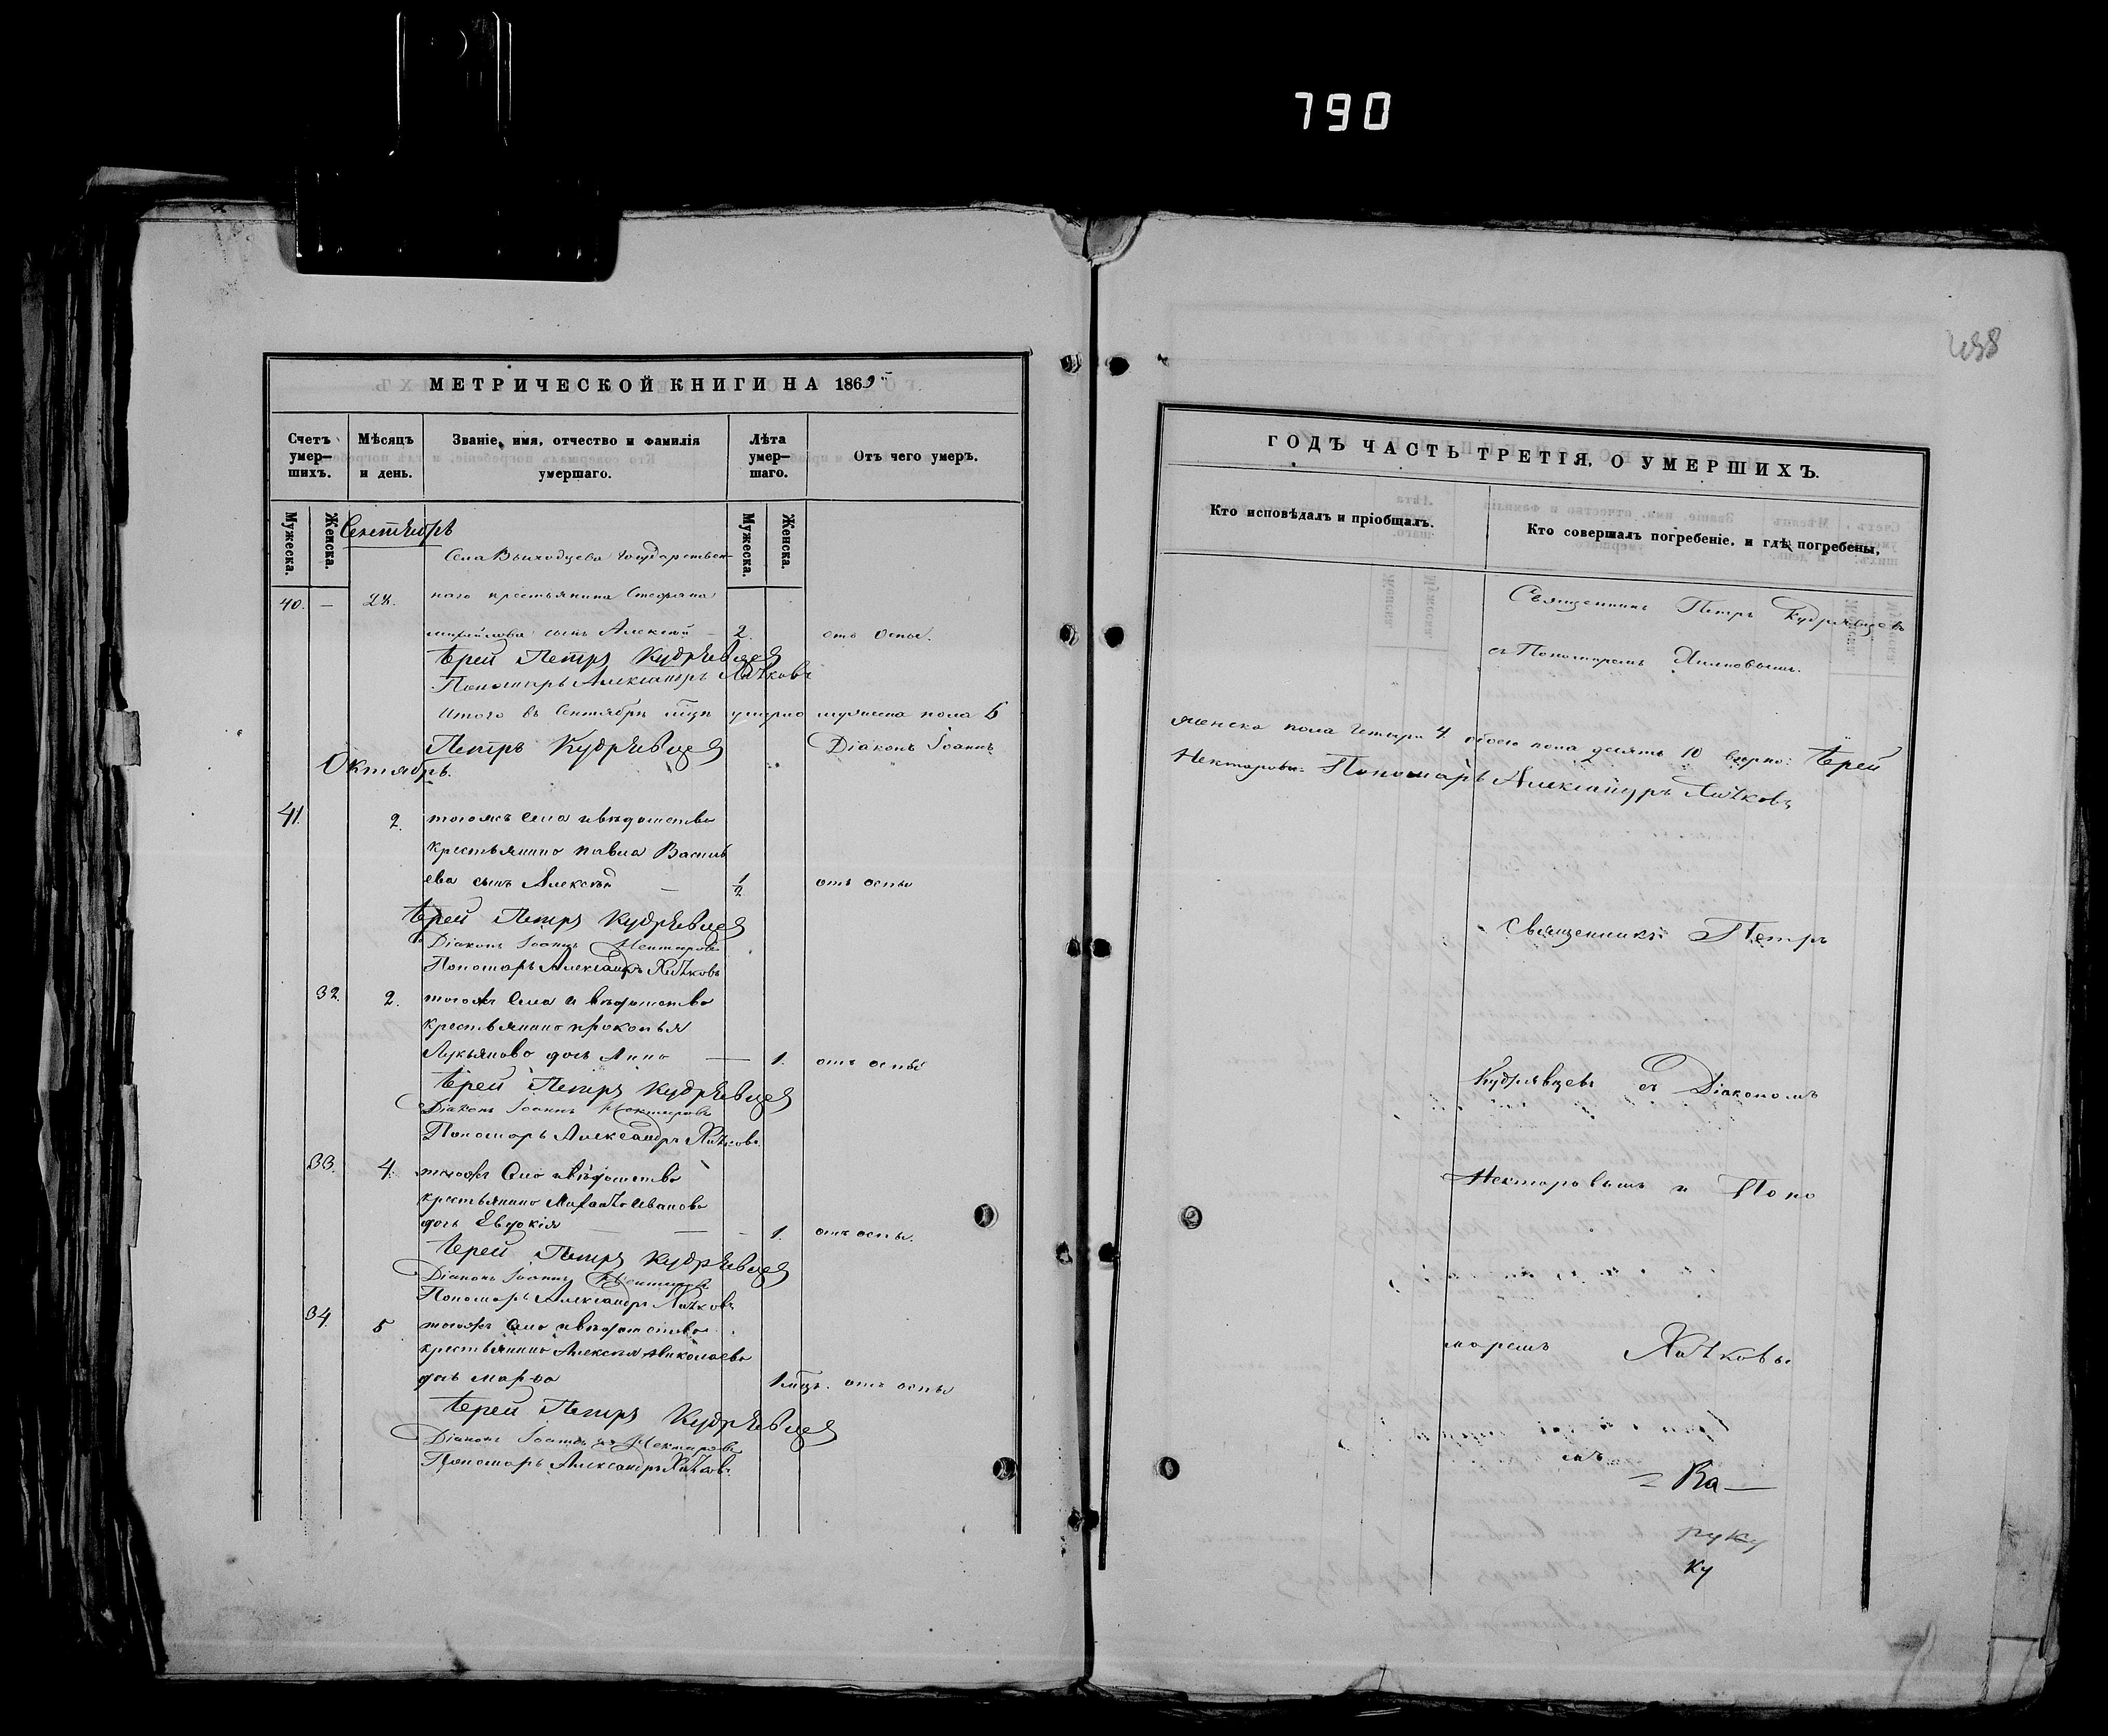 790
438
МЕТРИЧЕСКОЙ КНИГИ НА 1869
Счетъ умер-шихъ.
Мѣсяцъ и день.
Званіе, имя, отчество и фамилія умершаго.
Лѣта умер-шаго.
Отъ чего умеръ.
Мужеска.
Женска.
Мужеска.
Женска.
Сентябрь
Села Выходцева Государствен
40. — 28. наго крестьянина Стефана
Михайлова сынъ Алексѣй — 2. отъ Оспы.
Іерей Петръ Кудрявцев
Пономарь Александръ
Итого въ Сентябрѣ мцѣ умерло мужеска пола 6
Петръ Кудрявцев Діаконъ Іоаннъ
Октябрь.
41. 2. тогожъ Села и вѣдомства
крестьянина Павла Василь
ева сынъ Алексѣй — 1/2 отъ оспы
Іерей Петръ Кудрявцев
Діаконъ Іоаннъ Нектаровъ
Пономарь Александръ
32. 2. тогожъ Села и вѣдомства
крестьянина Прокопья
Лукьянова дочь Анна — 1. отъ оспы
Іерей Петръ Кудрявцев
Діаконъ Іоаннъ Нектаровъ
Пономарь Александръ
33. 4. тогожъ Села и вѣдомства
крестьянина Михаила Иванова
дочь Евдокія — — — 1. отъ оспы.
Іерей Петръ Кудрявцев
Діаконъ Іоаннъ Нектаровъ
Пономарь Александръ
34. 5 тогожъ Села и вѣдомства
крестьянина Алексѣя Николаева
дочь Марфа 1 мцъ. отъ оспы
Іерей Петръ Кудрявцев
Діаконъ Іоаннъ Нектаровъ
Пономарь Александръ
ГОДЪ ЧАСТЬ ТРЕТІЯ, О УМЕРШИХЪ.
Кто исповѣдалъ и пріобщалъ.
Кто совершалъ погребеніе, и гдѣ погребены,
Священникъ Петръ Кудрявцевъ
съ Пономаремъ
женска пола четыре 4. обоего пола десять 10 вѣрно: Іерей
Нектаровъ Пономарь Александръ
Священникъ Петръ
Кудрявцевъ съ Діакономъ
Нектаровымъ и Поно
маремъ
мъ
= Ва —
руку
ку